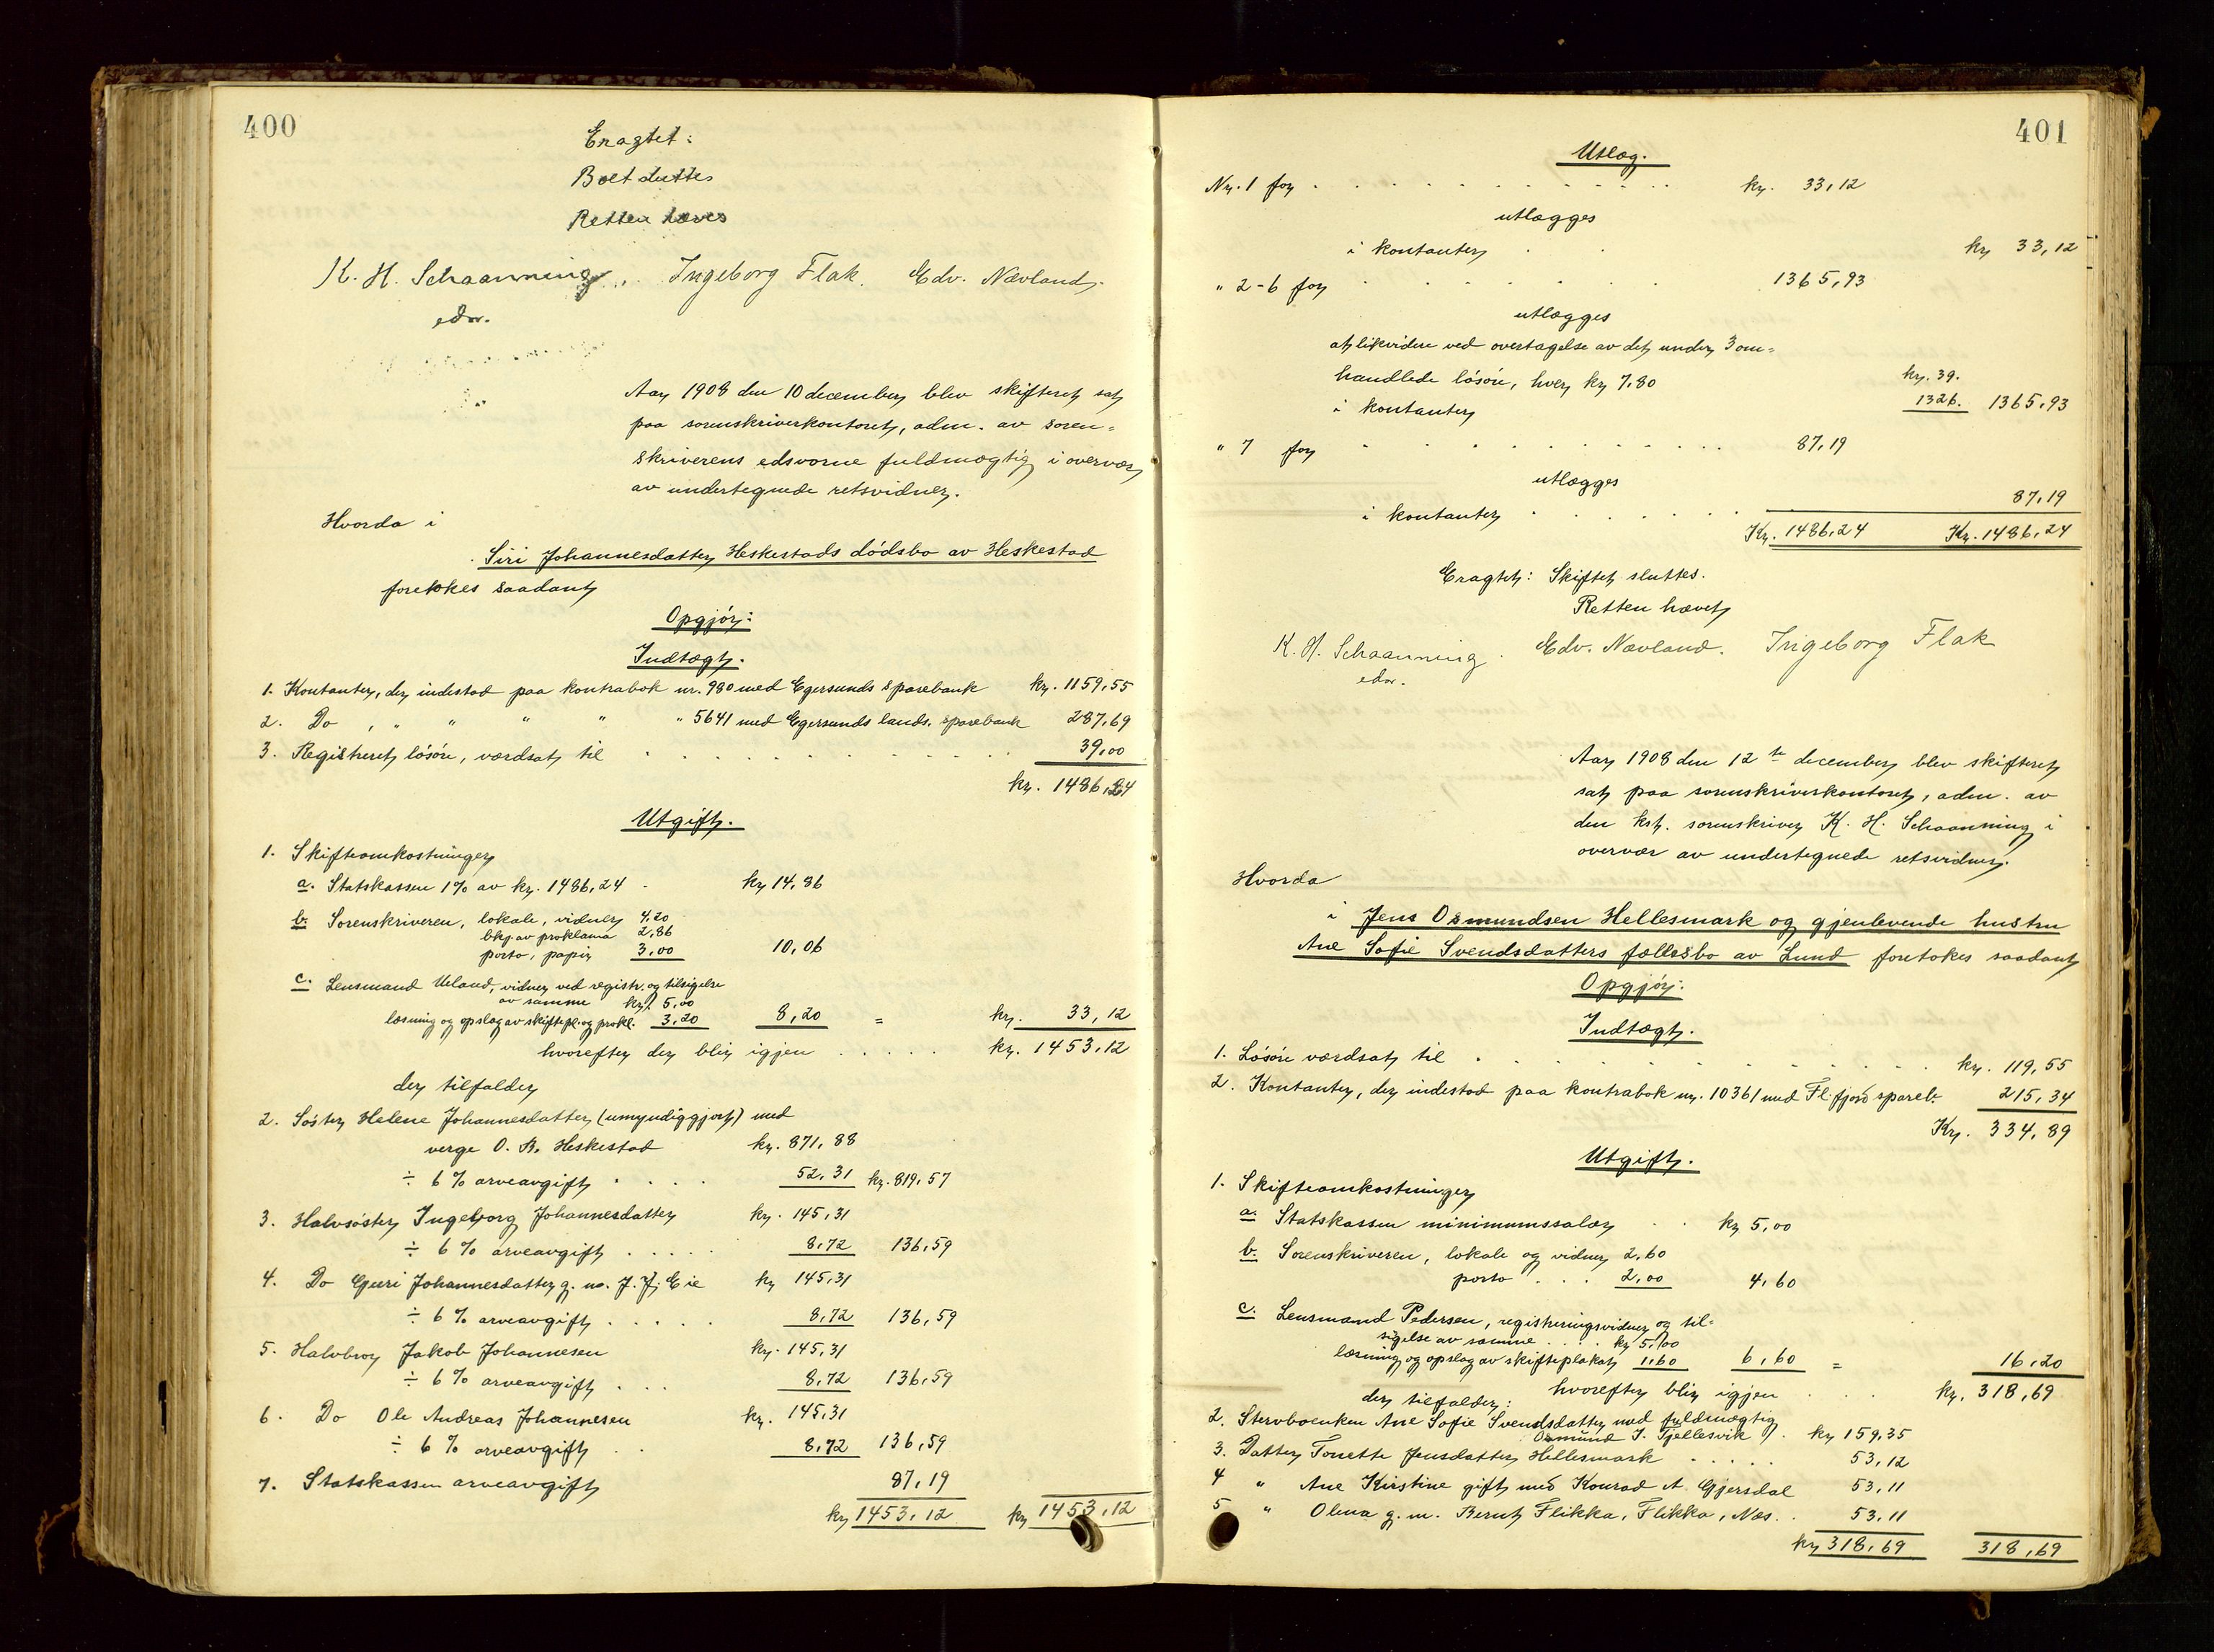 400
Eragtet:
Boet sluttes
Retten hæves
K. H. Schaanning, Ingeborg Flak. Edv. Nævland.
edsv.
Aar 1908 den 10 december blev skifteret sat
paa sorenskriverkontoret, adm. av soren=
skriverens edsvorne fuldmægtig i overvær
av undertegnede retsvidner.
Hvorda i
Siri Johannesdatter Heskestads dødsbo av Heskestad
foretokes saadant
Opgjør:
Indtægt.
1. Kontanter, der indestod paa kontrabok nr. 980 med Egersunds sparebank kr. 1159,55
2. Do , " " " " " 5641 med Egersunds lands. sparebank 287,69
3. Registreret løsøre, værdsat til . . . . . . . 39,00
kr. 1486,24
Utgift.
1. Skifteomkostninger
a. Statskassen 1% av kr. 1486,24 - kr 14,86
b. Sorenskriveren, lokale, vidner 4,20
bkj. av proklama 2,86
porto, papir 3,00 10,06
c. Lensmand Ueland, vidner ved registr. og tilsigelse
av samme kr. 5,00
læsning og opslag av skiftepl. og prokl. 3,20 8,20 = kr. 33,12
hvorefter der blir igjen . . . . . kr. 1453,12
der tilfalder
2. Søster Helene Johannesdatter (umyndiggjort) med
verge O. B. Heskestad kr. 871,88
÷ 6 % arveavgift . . . . 52,31 kr. 819,57
3. Halvsøster Ingeborg Johannesdatter kr. 145,31
÷ 6 % arveavgift . . . . . 8,72 136,59
4. Do Guri Johannesdatter g. m. J. J. Eie kr 145,31
÷ 6 % arveavgift . . . . . 8,72 136,59
5. Halvbror Jakob Johannesen kr. 145,31
÷ 6 % arveavgift . . . 8,72 136,59
6. Do Ole Andreas Johannesen kr. 145,31
÷ 6 % arveavgift . . 8,72 136,59
7. Statskassen arveavgift 87,19
kr 1453,12 kr 1453,12
401
Utlæg.
Nr. 1 for . . . . . . . . . . . . kr. 33,12
utlægges
i kontanter . . kr 33,12
" 2-6 for . . . . . . . 1365,93
utlægges
at likvidere ved overtagelse av det under 3 om=
handlede løsøre, hver kr 7.80 kr. 39.
i kontanter 1326. 1365,93
" 7 for . . . . . . . . . . . 87,19
utlægges
i kontanter . . . . . . 87,19
Kr. 1486,24 Kr. 1486,24
Eragtet: Skiftet sluttes.
Retten hævet
K. H. Schaanning. Edv. Nævland. Ingeborg Flak
edsv.
Aar 1908 den 12te december blev skifteret
sat paa sorenskriverkontoret, adm. av
den kst. sorenskriver K. H. Schaanning i
overvær av undertegnede retsvidner.
Hvorda
i Jens Osmundsen Hellesmark og gjenlevende hustru
Ane Sofie Svendsdatters fællesbo av Lund foretokes saadant
Opgjør:
Indtægt.
1. Løsøre værdsat til . . . . . . . . . . kr. 119,55
2. Kontanter, der indestod paa kontrabok nr. 10361 med Fl.fjord spareb. 215,34
Kr. 334,89
Utgift.
1. Skifteomkostninger
a. Statskassen minimumssalær . . kr 5,00
b. Sorenskriveren, lokale og vidner 2,60
porto . . . 2,00 4,60
c. Lensmand Pedersen, registreringsvidner og til=
sigelse av samme . . . . kr 5,00
læsning og opslag av skifteplakat 1,60 6,60 = 16,20
hvorefter blir igjen . . . kr. 318,69
der tilfalder:
2. Stervboenken Ane Sofie Svendsdatter med fuldmægtig
Osmund J. Tjellesvik . kr 159,35
3. Datter Tonette Jensdatter Hellesmark . . . . . 53,12
4 " Ane Kirstine gift med Konrad A. Gjersdal 53,11
5 " Olena g. m. Bernt Flikka, Flikka, Næs. . 53,11
kr 318,69 318,69